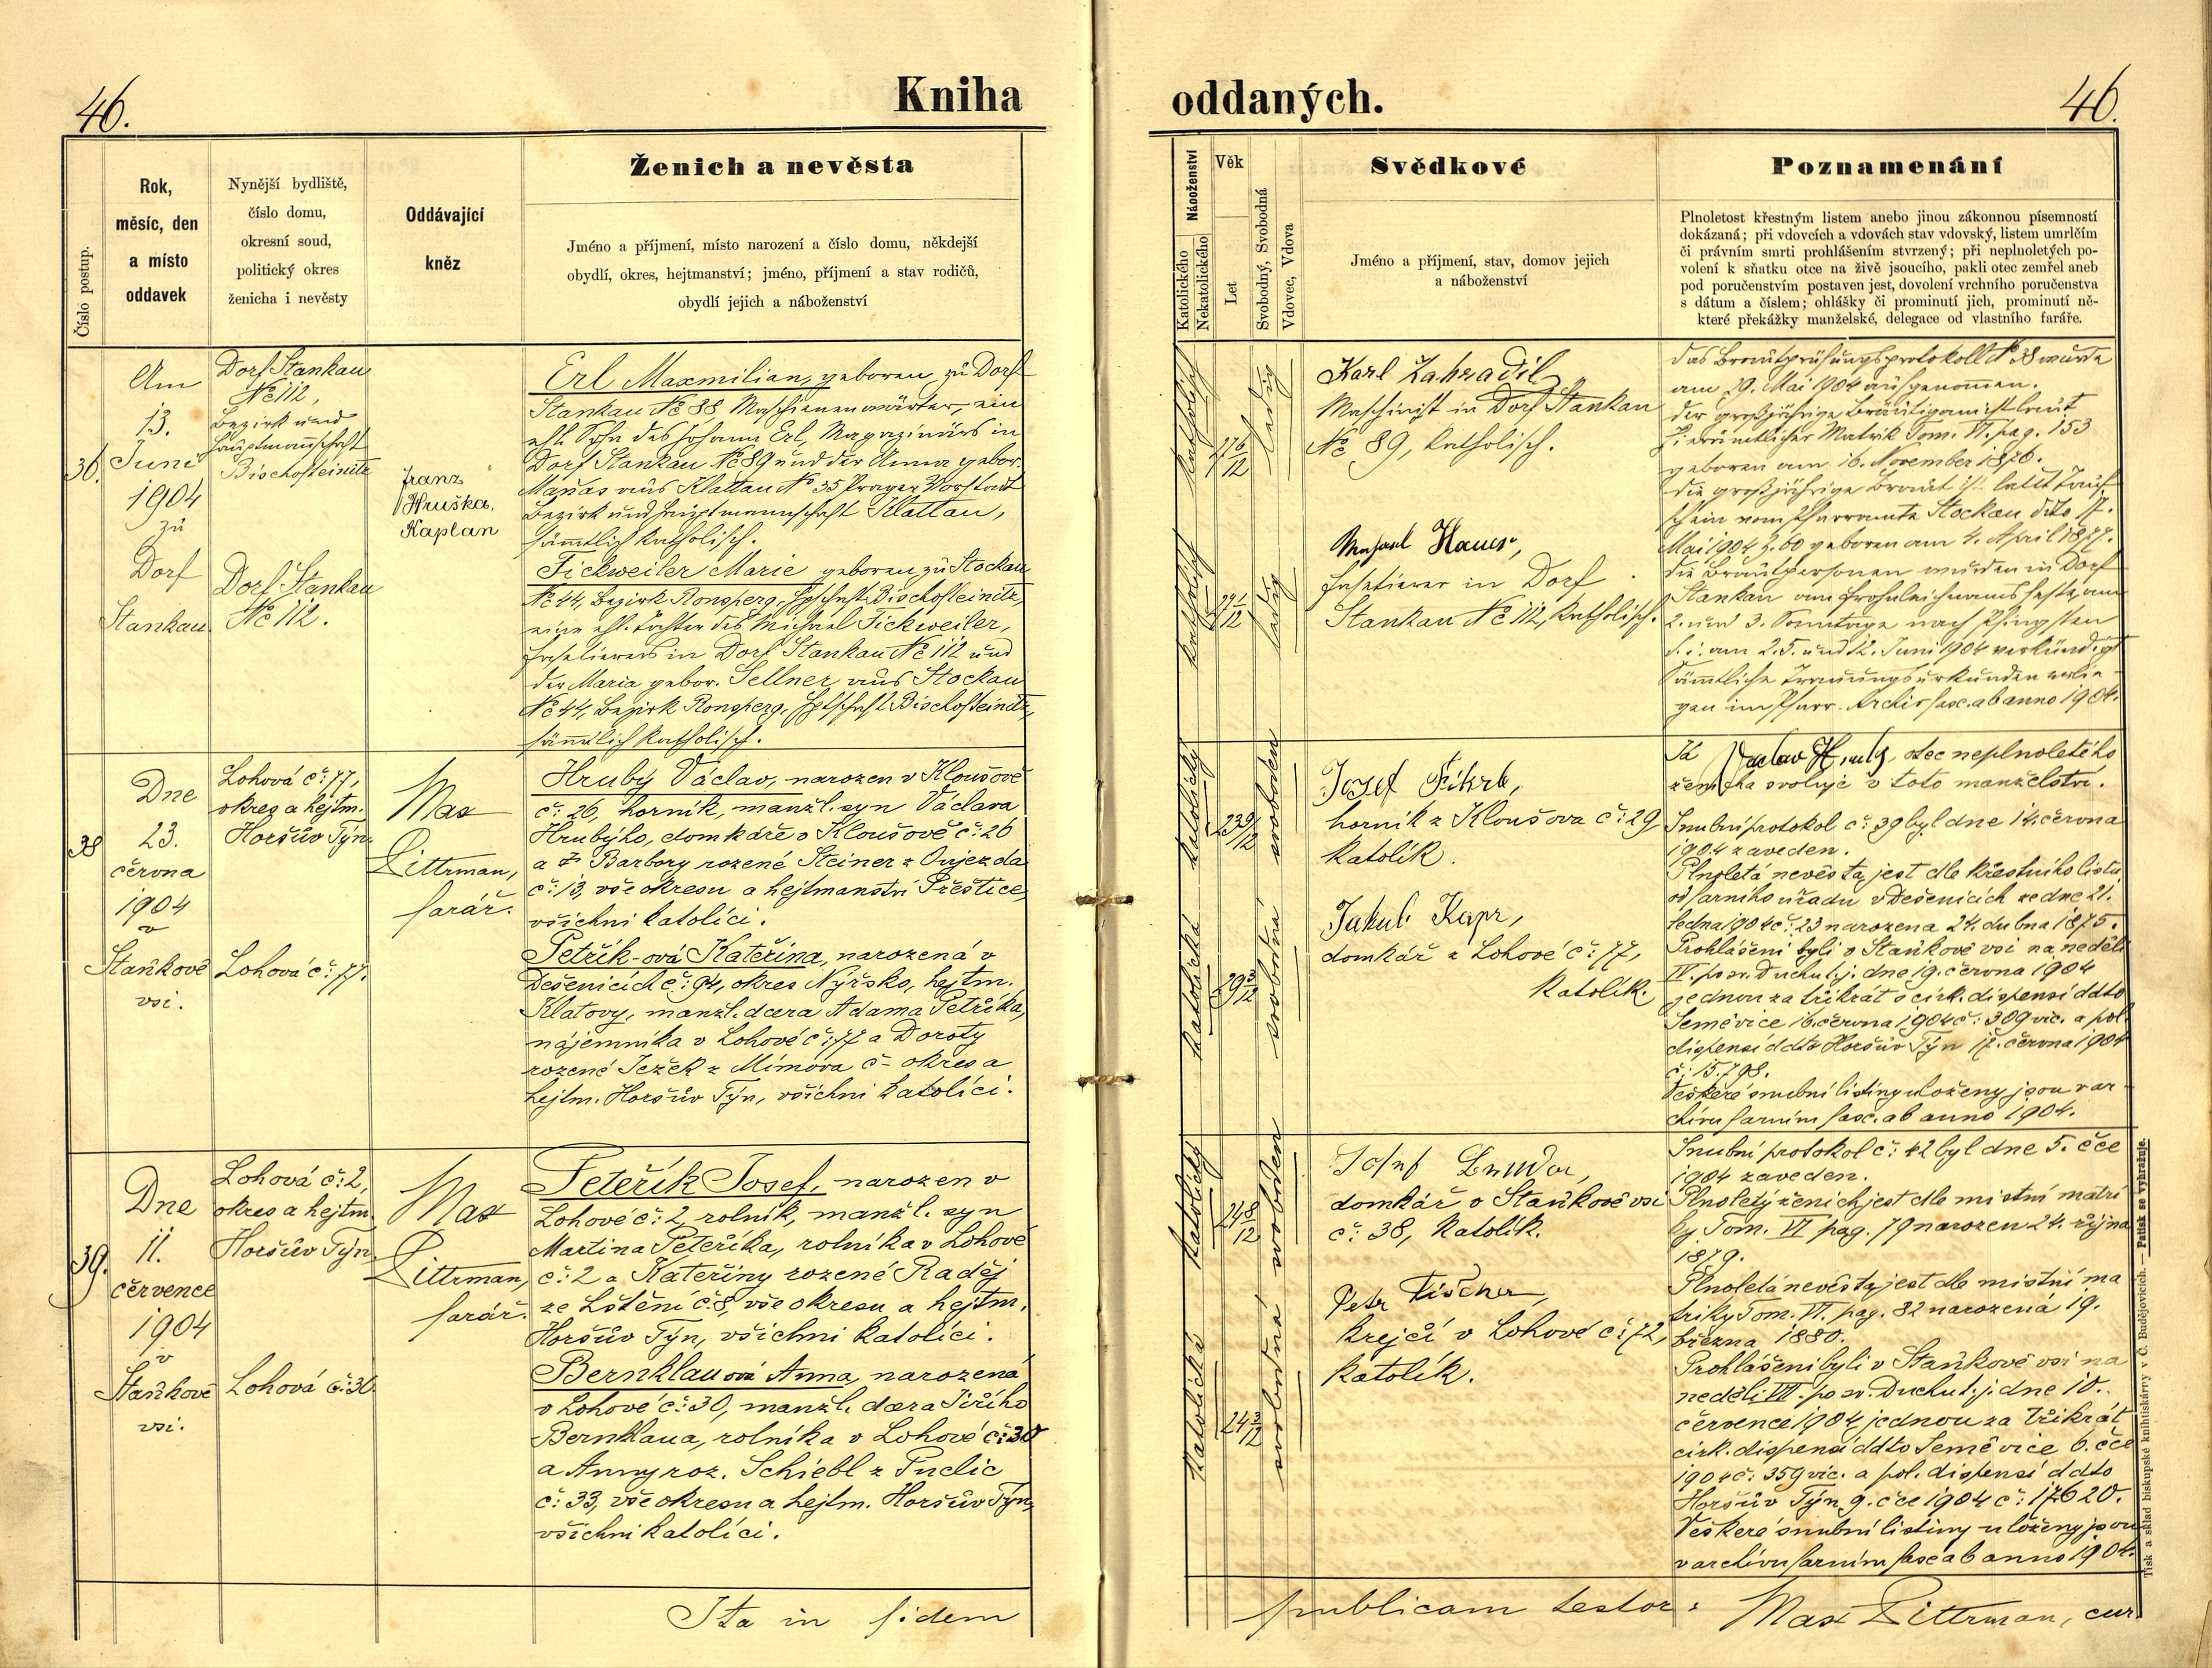 46.
Kniha
oddaných.
46.
Číslo postup.
Rok,
měsíc, den
a místo
oddavek
Nynější bydliště,
číslo domu,
okresní soud,
politický okres
ženicha i nevěsty
Oddávající
kněz
Ženich a nevěsta
Jméno a příjmení, místo narození a číslo domu, někdejší
obydlí, okres, hejtmanství; jméno, příjmení a stav rodičů,
obydlí jejich a náboženství
Náboženství
Katolického
Nekatolického
Věk
Let
Svobodný, Svobodná
Vdovec, Vdova
Svědkové
Jméno a příjmení, stav, domov jejich
a náboženství
Poznamenání
Plnoletost křestným listem anebo jinou zákonnou písemností
dokázaná; při vdovcích a vdovách stav vdovský, listem umrlčím
či právním smrti prohlášením stvrzený; při neplnoletých po-
volení k sňatku otce na živě jsoucího, pakli otec zemřel aneb
pod poručenstvím postaven jest, dovolení vrchního poručenstva
s dátum a číslem; ohlášky či prominutí jich, prominutí ně-
které překážky manželské, delegace od vlastního faráře.
36.
Am
13.
Juni
1904
zu
Dorf
Stankau.
Dorf Stankau
No 112,
Bezirk und
Hauptmannschaft
Bischofteinitz
Dorf Stankau
No 112.
Franz
Hruška,
Kaplan
Erl Maxmilian, geboren zu Dorf
Stankau No 38 Maschinenwärter, ein
ehl. Sohn des Johann Erl, Magazinärs in
Dorf Stankau No 89 und der Anna gebor.
Maňas aus Klattau No 35 Prager Vorstadt
Bezirk und Hauptmannschaft Klattau,
sämmtlich katholisch.
Fickweiler Marie geboren zu Stockau
No 44, Bezirk Ronsperg, Hptschft Bischofteinitz,
eine ehl. Tochter des Michael Fickweiler,
in Dorf Stankau No 112 und
der Maria gebor. Sellner aus Stockau
No 44, Bezirk Ronsperg, Hptschft Bischofteinitz,
sämmtlich katholisch.
katholisch
27 6/12
ledig
katholisch
27 1/12
ledig
Karl Zahradil
Maschinist in Dorf Stankau
No 89, katholisch.
Hauer,
in Dorf
Stankau No 112, katholisch.
Das Brautprüfungsprotokoll No 38 wurde
am 29. Mai 1904 aufgenommen.
Der großjährige Bräutigam ist laut
hierämtlicher Matrik Tom. VI. pag. 153
geboren am 16. November 1876.
Die großjährige Braut ist laut Tauf-
schein vom Pfarramte Stockau dto 17.
Mai 1904 Z. 60 geboren am 4. April 1877.
Die Brautpersonen wurden in Dorf
Stankau am Frohnleichnamsfeste, am
2. und 3. Sonntage nach Pfingsten
d. i. am 2. 5. und 12. Juni 1904 verkündigt
Sämmtliche Trauungsurkunden erlie-
gen im Pfarr-Archiv fasc. ab anno 1904.
38
Dne
23.
června
1904
v
Staňkově
vsi.
Lohová č: 77,
okres a hejtm.
Horšův Týn.
Lohová č: 77.
Max
Pittrman,
farář.
Hruby Václav, narozen v Kloušově
č: 26, horník, manžl. syn Václava
Hrubýho, domkáře v Kloušově č: 26
a Barbory rozené Steiner z Oujezda
č: 13, vše okresu a hejtmanství Přeštice,
všichni katolíci.
Petřík-ová Kateřina, narozená v
Dešenicích č: 94, okres Nýřsko, hejtm.
Klatovy, manžl. dcera Adama Petříka,
nájemníka v Lohové č: 77 a Doroty
rozené Ježek z Mímova č- okres a
hejtm. Horšův Týn, všichni katolíci.
katolický
23 9/12
svoboden
katolická
29 2/12
svobodná
Josef Fikrle,
horník z Kloušova č: 29
katolík.
Jakub Kapr,
domkář z Lohové č: 77,
katolík.
Já Václav Hrubý, otec neplnoletého
ženicha svoluje v toto manželství.
Snubní protokol č: 39 byl dne 14. června
1904 zaveden.
Plnoletá nevěsta jest dle křestního listu
od farního úřadu v Dešenicích ze dne 21.
ledna 1904 č: 23 narozena 24. dubna 1875.
Prohlášeni byli v Staňkově vsi na neděli
IV. po sv. Duchu t. j. dne 19. června 1904
jednou za třikrát s cirk. dispensí ddto
Seměvice 16. června 1904 č: 309 vic. a pol.
dispensí ddto Horšův Týn 17. června 1904
č: 15.798.
Veškeré snubní listiny uloženy jsou v ar-
chivu farním fasc. ab anno 1904.
39.
Dne
11.
července
1904
v
Staňkově
vsi.
Lohová č: 2,
okres a hejtm.
Horšův Týn.
Lohová č: 30
Max
Pittrman,
farář.
Peteřík Josef, narozen v
Lohové č: 2, rolník, manžl. syn
Martina Peteříka, rolníka v Lohové
č: 2 a Kateřiny rozené Raděj
ze Lštění č: 8, vše okresu a hejtm.
Horšův Týn, všichni katolíci.
Bernklauová Anna, narozená
v Lohové č: 30, manžl. dcera Jiřího
Bernklaua, rolníka v Lohové č: 30
a Anny roz. Schiebl z Pudlic
č: 33, vše okresu a hejtm. Horšův Týn,
všichni katolíci.
katolický
24 8/12
svoboden
katolická
24 3/12
svobodná
Josef
domkář v Staňkově vsi
č: 38, katolík.
Petr Fischer,
krejčí v Lohové č: 72,
katolík.
Snubní protokol č: 42 byl dne 5. čce
1904 zaveden.
Plnoletý ženich jest dle místní matri
ky Tom. VI pag. 79 narozen 24. října
1879.
Plnoletá nevěsta jest dle místní ma
triky Tom. VI. pag. 82 narozená 19.
března 1880.
Prohlášeni byli v Staňkově vsi na
neděli VII. po sv. Duchu t. j. dne 10.
července 1904 jednou za třikrát
cirk. dispensí ddto Seměvice 6. čce
1904 č: 359 vic. a pol. dispensí ddto
Horšův Týn 9. čce 1904 č: 17620.
Veškeré snubní listiny uloženy jsou
v archivu farním fasc ab anno 1904.
Ita in fidem
publicam testor:
Max Pittrman, cur.
Tisk a sklad biskupské knihtiskárny v Č. Budějovicích. — Patisk se vyhražuje.